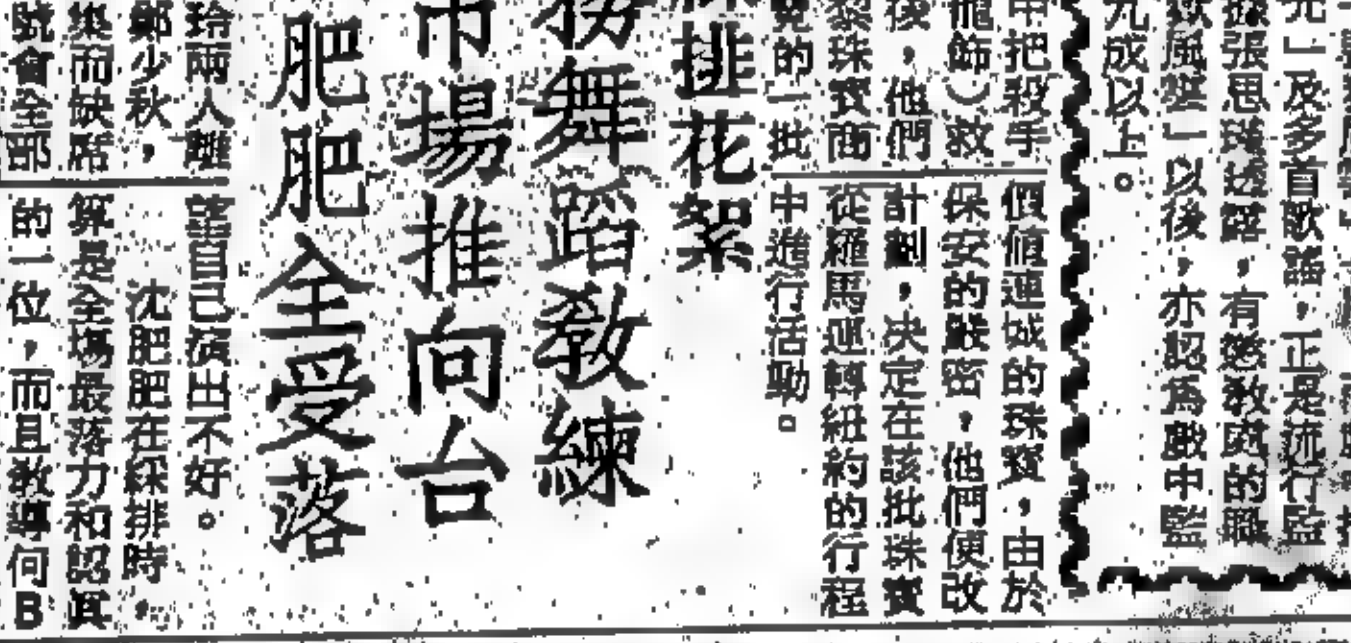 元」及多首歌謠，正是流行監
張思瑾透露，有懲教處的職
風雲」以後，亦認爲戲中監
九成以上。
中把殺手
龍飾）救
後，他們
黎珠寶商
竟的一批
價值連城的珠寶，由於
保安的嚴密，他們便改
計劃，决定在該批珠寶
從羅馬運轉紐約的行程
中進行活動。
排花絮
務舞蹈教練
市場推向台
肥肥全受落
玲兩人離
鄭少秋，
集而缺席
號會全部
望自己演出不好。
沈肥肥在綵排時，
算是全場最落力和認眞
的一位，而且教導何B